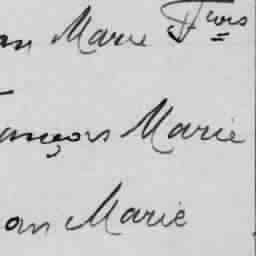 an Marie Fcois
ançois Marie
an Marie